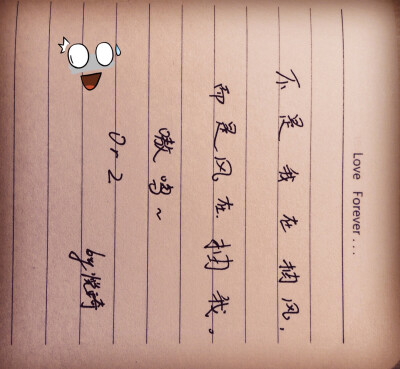 Love Forever...
不是我在抽风,
而是风在抽我。
嗷呜~
Or2
by悦琦